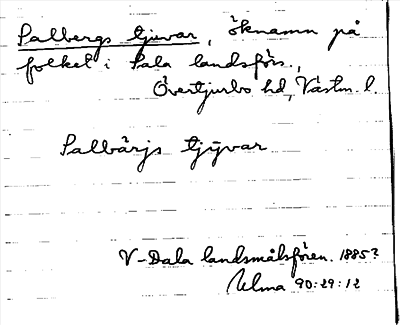 Salbergs tjuvar, öknamn på
folket i Sala landsförs.,
Övertjurbo hd, Västm. l.
Salbärjs tjÿvar
V-Dala landsmålsfören. 1885?
Ulma 90:29:12